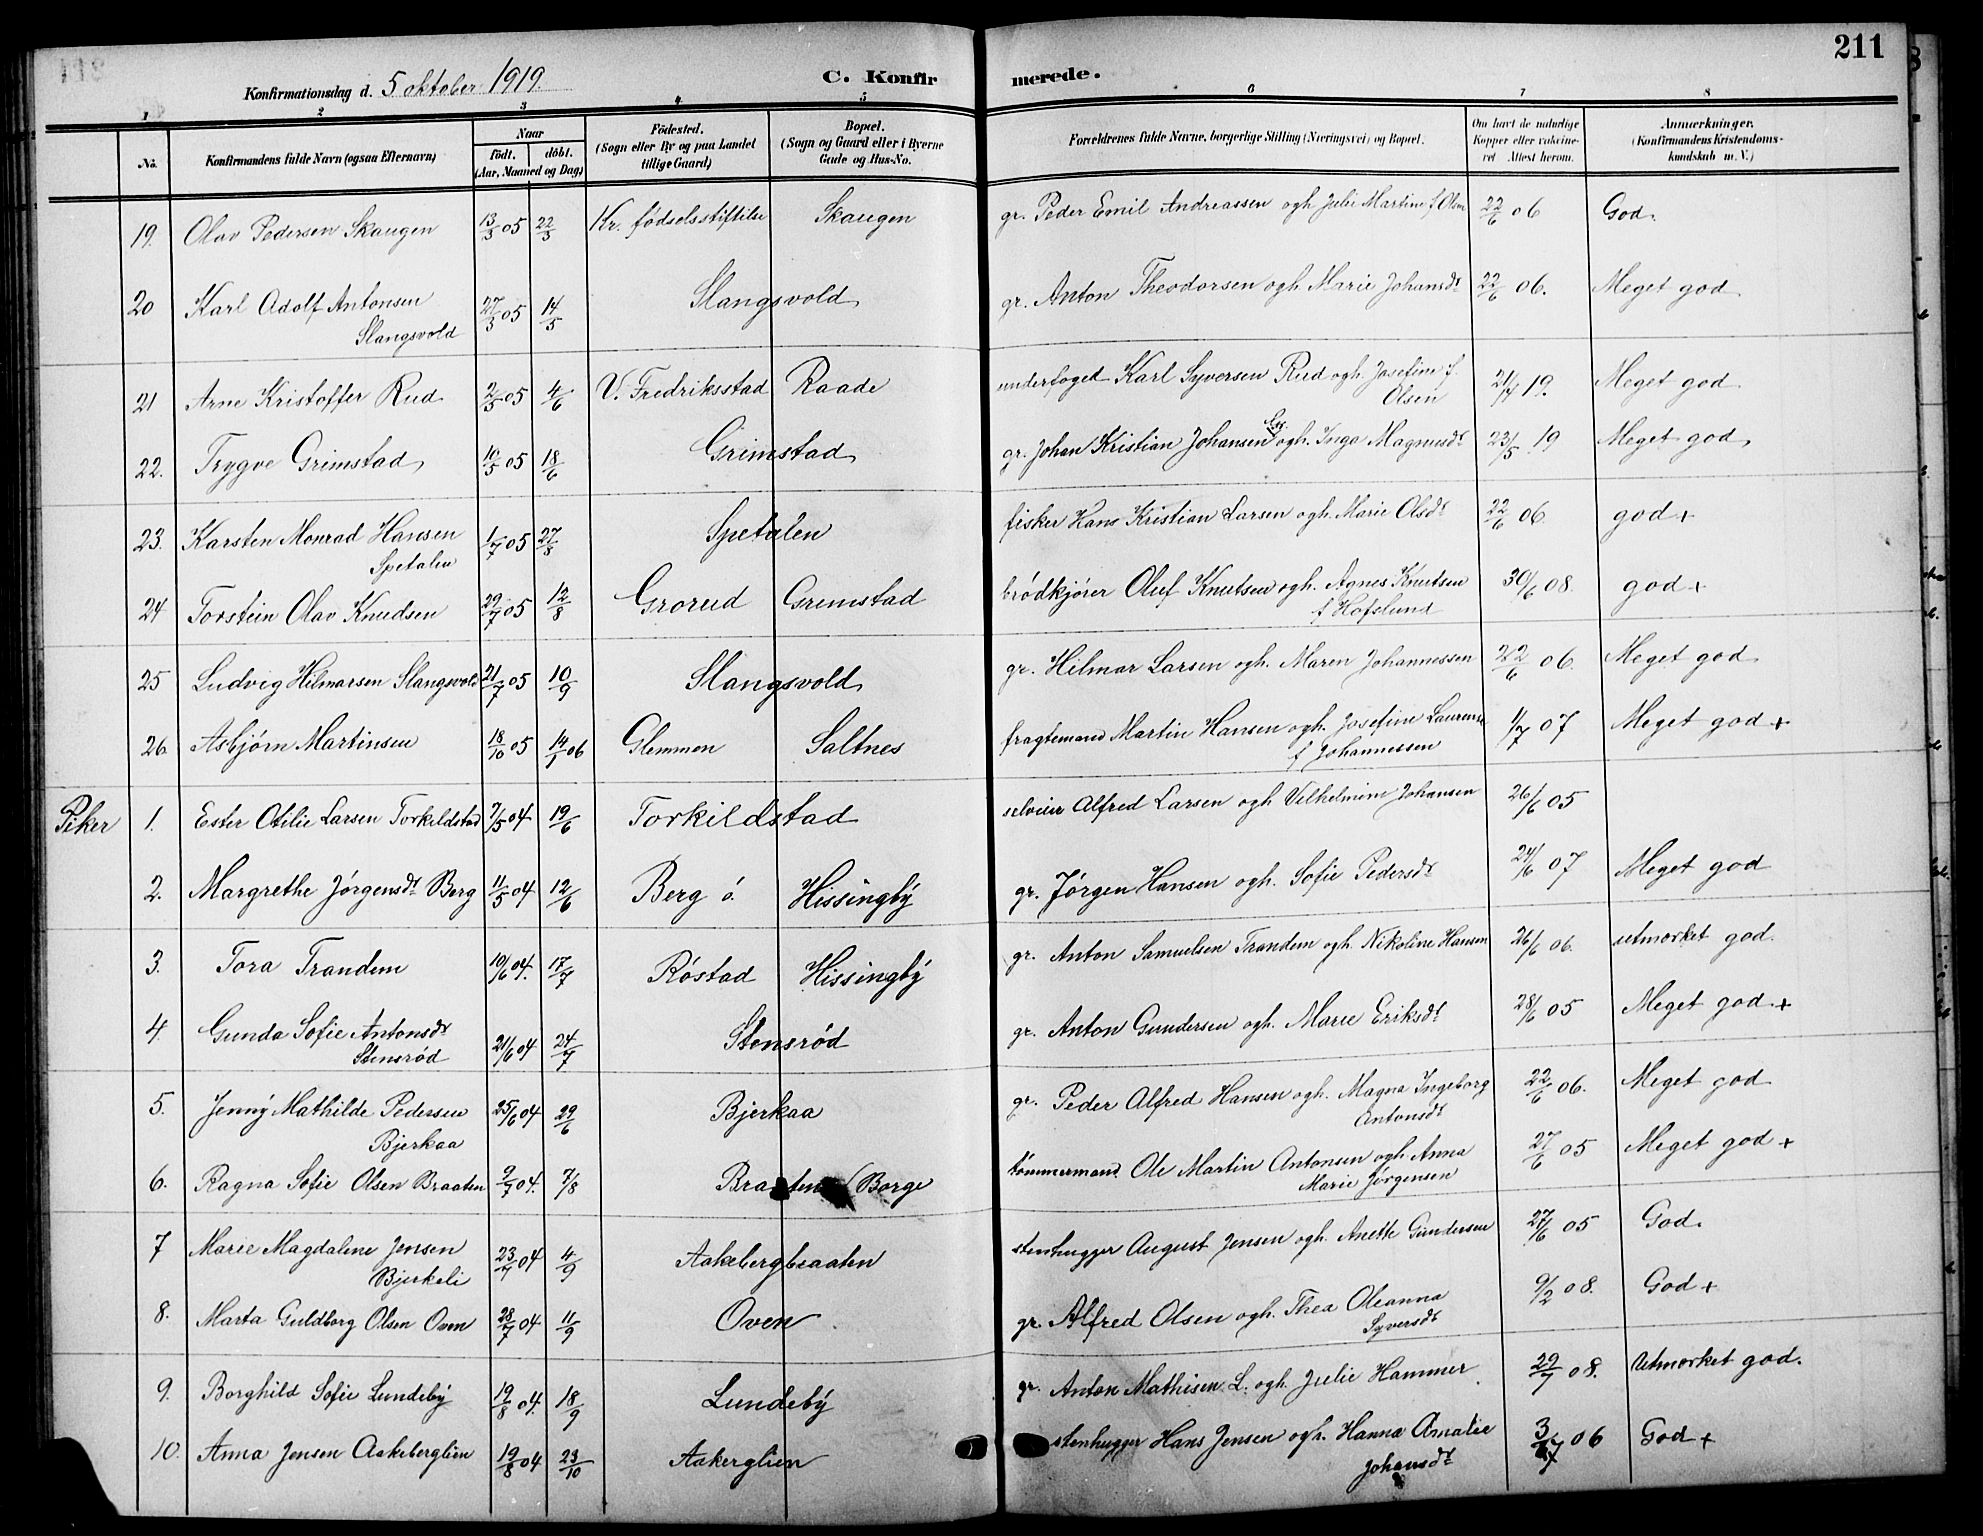 211
Konfirmationsdag d. 5 oktober 1919. C. Konfirmerede.
1 2 3 4 5 6 7 8
No. Konfirmandens fulde Navn (ogsaa Efternavn) Naar født. døbt. (Aar, Maaned og Dag) Fødested. (Sogn eller By og paa Landet tillige Gaard) Bopæl. (Sogn og Gaard eller i Byerne Gade og Hus-No. Forældrenes fulde Navne, borgerlige Stilling (Næringsvei) og Bopæl. Om havt de naturlige Kopper eller vakcineret Attest herom. Anmærkninger. (Konfirmandens Kristendomskundskab m. V.)
19. Olav Pedersen Skaugen 13/3 05 22/3 Kr. fødselsstiftelse Skaugen gr. Peder Emil Andreassen ogh Julie Martine f Olsen 22/6 06 God.
20 Karl Adolf Antonsen 27/3 05 14/5 Slangsvold gr. Anton Theodorsen ogh Marie Johansdt 22/6 06. Meget god
Slangsvold
21 Arne Kristoffer Rud 2/5 05 4/6 V. Fredriksstad Raade underfoged Karl Syversen Rud ogh. Josefine f. 21/4 19. Meget god
Olsen
22. Trygve Grimstad 10/5 05 18/6 Grimstad gr. Johan Kristian Johansen ogh. Inga Magnusdt 23/5 19 Meget god
23. Karsten Monrad Hansen 1/7 05 27/8 Spetalen fisker Hans Kristian Larsen ogh. Marie Olsdt 22/6 06. god +
Spetalen
24 Torstein Olav Knudsen 29/7 05 12/8 Grorud Grimstad brødkjører Oluf Knutsen ogh. Agnes Knutsen 30/6 08. god +
f Hofslund
25 Ludvig Hilmarsen Slangsvold 21/7 05 10/9 Slangsvold gr. Hilmar Larsen ogh. Maren Johannessen 22/6 06. Meget god
26. Asbjørn Martinsen 18/10 05 14/1 06 Glemmen Saltnes fragtemand Martin Hansen ogh. Josefine Laurense 1/7 07 Meget god +
f Johannessen
Piker 1. Ester Otilie Larsen Torkildstad 7/5 04 19/6 Torkildstad selveier Alfred Larsen ogh Vilhelmine Johansen 26/6 05
2. Margrethe Jørgensdt Berg 11/5 04 12/6 Berg ö. Hissingby gr. Jørgen Hansen ogh. Sofie Pedersdt 24/6 07 Meget god
3. Tora Trandem 10/6 04. 17/7 Röstad Hissingby gr. Anton Samuelsen Trandem ogh. Nikoline Hansen 26/6 06. utmerket god.
4. Gunda Sofie Antonsdt 21/6 04 24/7 Stensrød gr. Anton Gundersen ogh. Marie Eriksdt 28/6 05 Meget god +
Stensrød
5. Jenny Mathilde Pedersen 25/6 04 29/6 Bjerkaa gr. Peder Alfred Hansen ogh. Magna Ingeborg 22/6 06. Meget god
Bjerkaa Antonsdt
6. Ragna Sofie Olsen Braaten 9/7 04. 7/8 Braaten (Borge tömmermand. Ole Martin Antonsen ogh. Anna 27/6 05 Meget god +
Marie Jørgensen
7 Marie Magdalene Jensen 23/7 04 4/9 Aakebergbraaten stenhugger August Jensen ogh. Anette Gundersen 27/6 05 God.
Bjerkeli
8. Marta Guldborg Olsen Oven 28/7 04 11/9 Oven gr. Alfred Olsen ogh. Thea Oleanna 9/2 08. God +
Syversdt
9. Borghild Sofie Lundeby 19/8 04. 18/9 Lundeby gr. Anton Mathisen L. ogh. Julie Hammer 29/7 08. Utmerket god.
10. Anna Jensen Aakeberglien 19/8 04 23/10 Aakerglien stenhugger Hans Jensen ogh. Hanna Amalie 3/7 06 God +
Johansdt